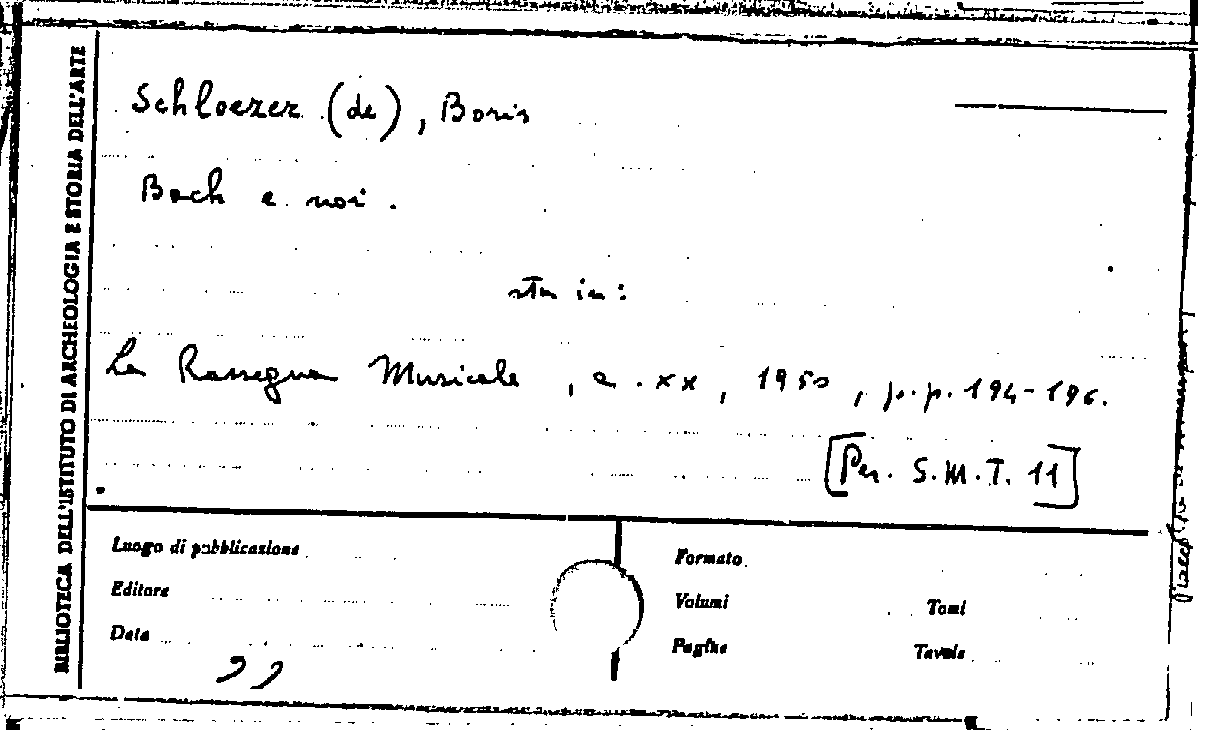 BIBLIOTECA DELL'ISTITUTO DI ARCHEOLOGIA E STORIA DELL'ARTE
Schloezer (de), Boris
Bach e noi.
sta in:
La Rassegna Musicale, a. XX, 1950, p.p. 194-196.
[Per. S.M.T. 11]
Luogo di pubblicazione
Editore
Data
Formato
Volumi Tomi
Pagine Tavole